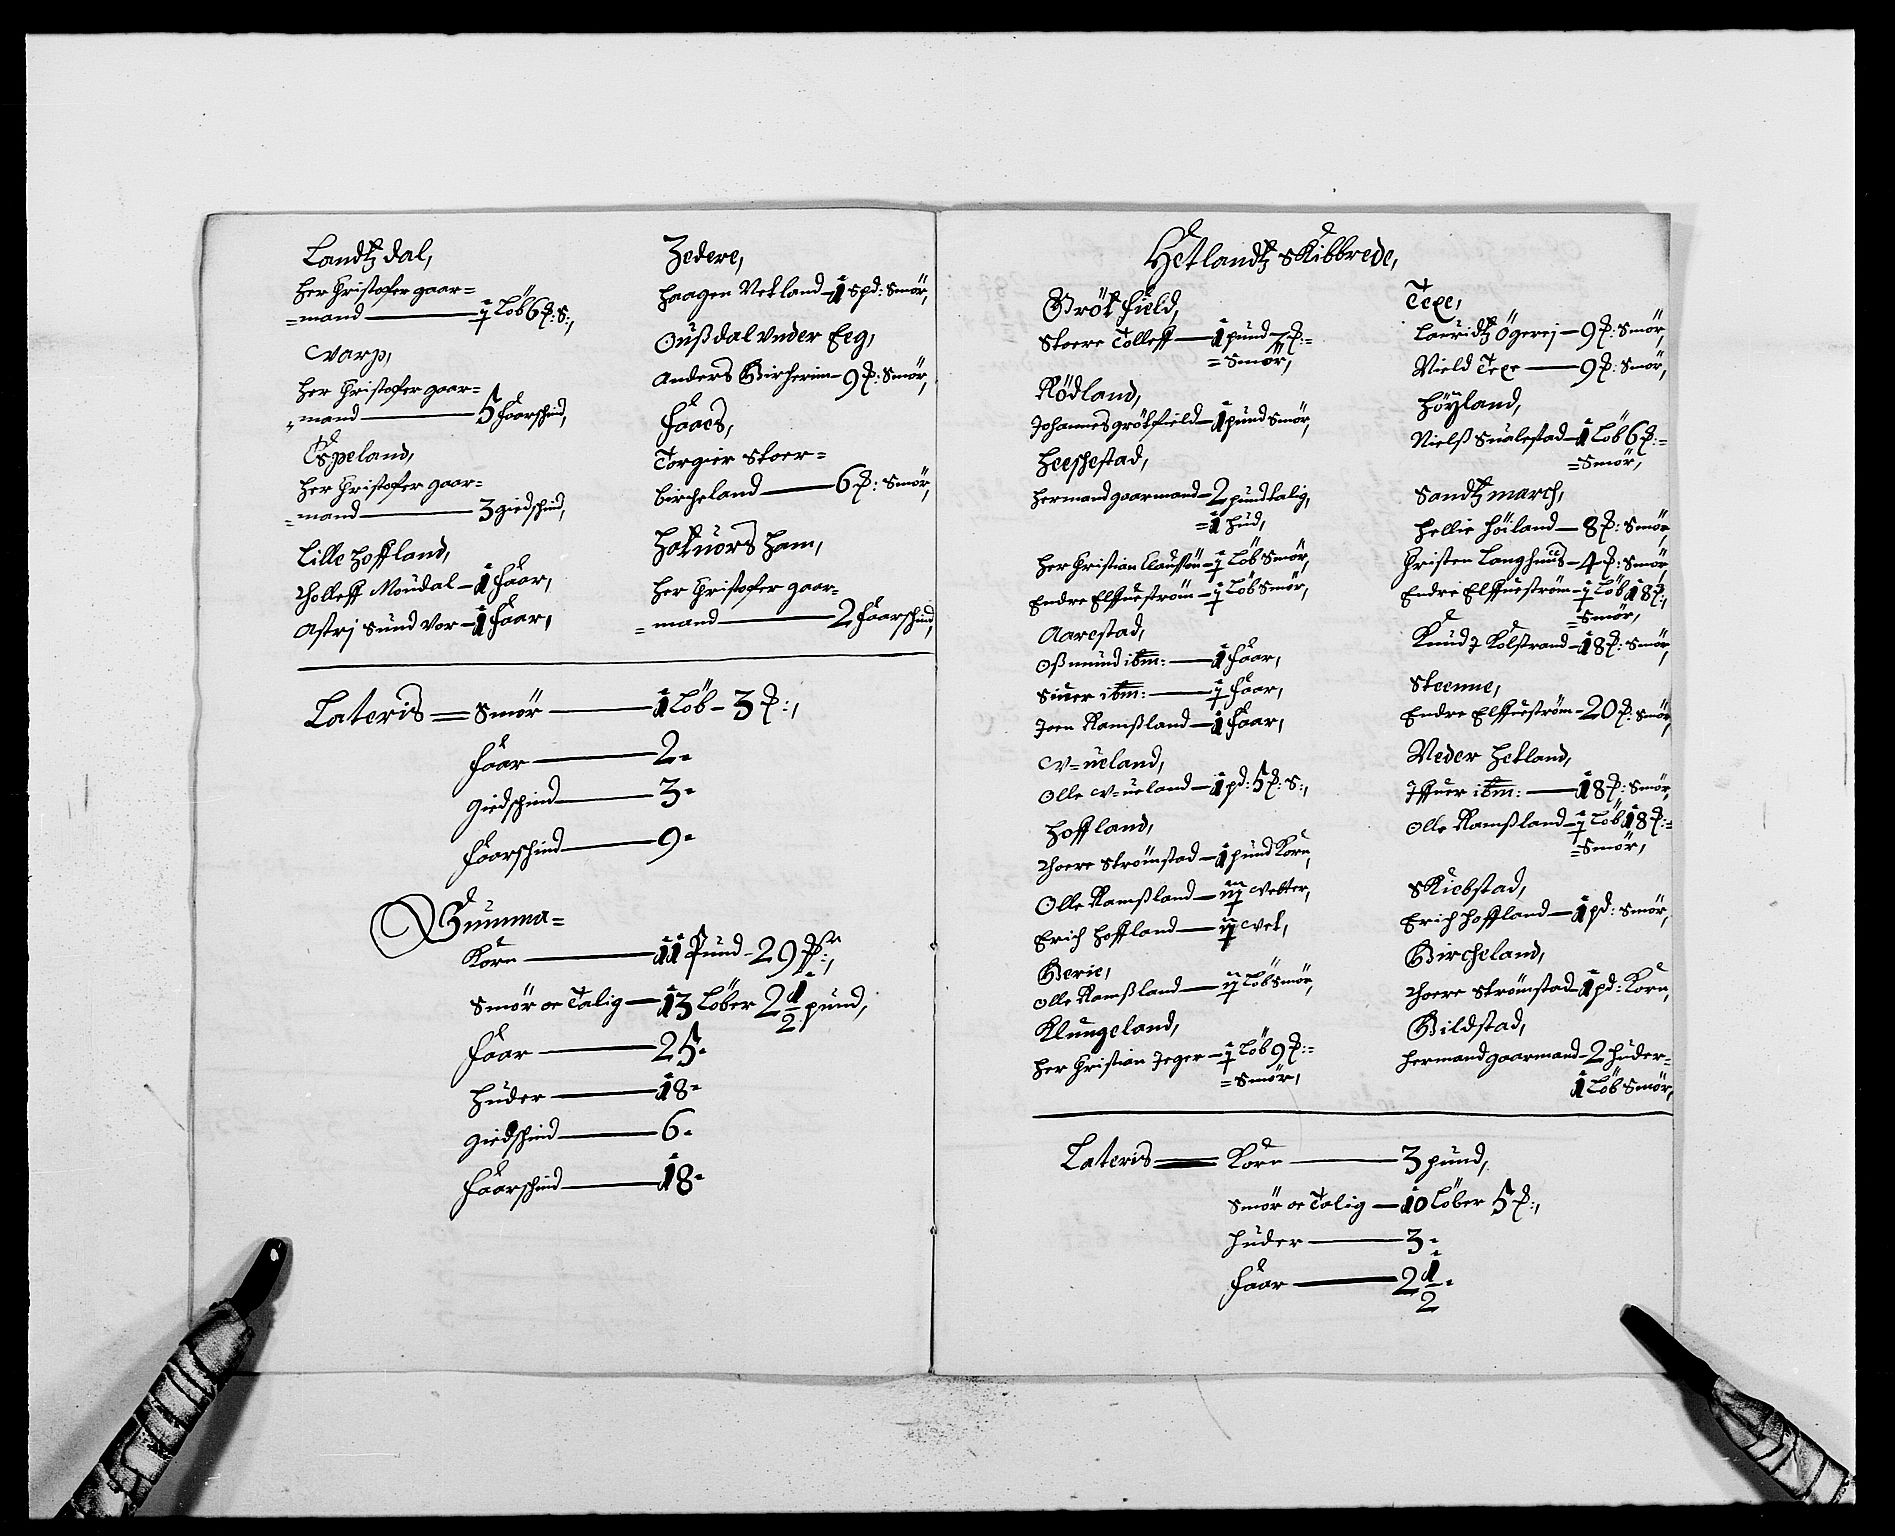 Landtz dal,
Her Christofer gaar=
=mand — ½ Löb 6 ℔: S:,
Warp,
Her Christofer gaar=
=mand — 5 Faarschind,
Espeland,
Her Christofer gaar=
=mand — 3 giedschind,
Lille Hoffland,
Tholleff Moudal — 1 Faar,
Astrj Sund vor — 1 Faar,
Zedere,
Haagen Netland — 1 Spd: Smör,
Oüßdal vnder Eeg,
Anders Bircheim — 9 ℔: Smör,
Faaes,
Torgier Stoer=
Bircheland — 6 ℔: Smör,
Hoküors Ham,
Her Christofer gaar=
=mand — 2 Faarschind,
Lateris = Smör — 1 Löb — 3 ℔:,
Faar — 2 =
Giedschind — 3 =
Faarschind — 9 =
Summa =
Korn — 11 Pund — 29 ℔:,
Smör oc Talig — 13 Löber 2 1/2 pund,
Faar — 25 =
Hüder — 18 =
Giedschind — 6 =
Faarschind — 18 =
Hetlandtz Skibbrede,
Grötfield,
Stoere Tolleff — 1 pund 7 ℔: =
= Smör,
Rödland,
Johannes grötfield — 1 pund Smör,
Heeschestad,
Hermand gaarmand — 2 pund talig,
= 1 Hud,
Her Christian Claussön — ½ Löb Smör,
Endre Elffueström — ½ Löb Smör,
Aarestad,
Oßmund ibm: — 1 Faar,
Siuer ibm: — ½ Faar,
Joen Ramßland — 1 Faar,
W=ueland,
Olle W=ueland — 1 pd: 5 ℔: S:,
Hoffland,
Thoere Strömstad — 1 pund Korn,
Olle Ramßland — Wetter,
Erich Hoffland — Wet,
Berie,
Olle Ramßland — Löb Smör,
Klungeland,
Her Christian Jeger — ½ Löb 9 ℔: =
= Smör,
Texe,
Lauridtz Ögerej — 9 ℔: Smör,
Nield Texe — 9 ℔: Smör,
Höyland,
Nielß Sualestad — 1 Löb 6 ℔: =
= Smör,
Sandtz march,
Hellie Höiland — 8 ℔: Smör
Christen Langhuus — 4 ℔: Smör
Endre Elffueström — ½ Löb 18 ℔:,
= Smör,
Knud Kolstrand — 18 ℔: Smör,
Steenne,
Endre Elffueström — 20 ℔: Smör,
Neder Hetland,
Iffuer ibm: — 18 ℔: Smör,
Olle Ramßland — ½ Löb 18 ℔: =
= Smör,
Skiebstad,
Erich Hoffland — 1 pd: Smör,
Bircheland,
Thoere Strömstad — 1 pd: Korn,
Bildstad,
Hermand gaarmand — 2 Hüder =
1 Löb Smör,
Lateris = Korn — 3 pund,
Smör oc Talig — 10 Löber 5 ℔:,
Hüder — 3 =
Faar — 2 1/2 =